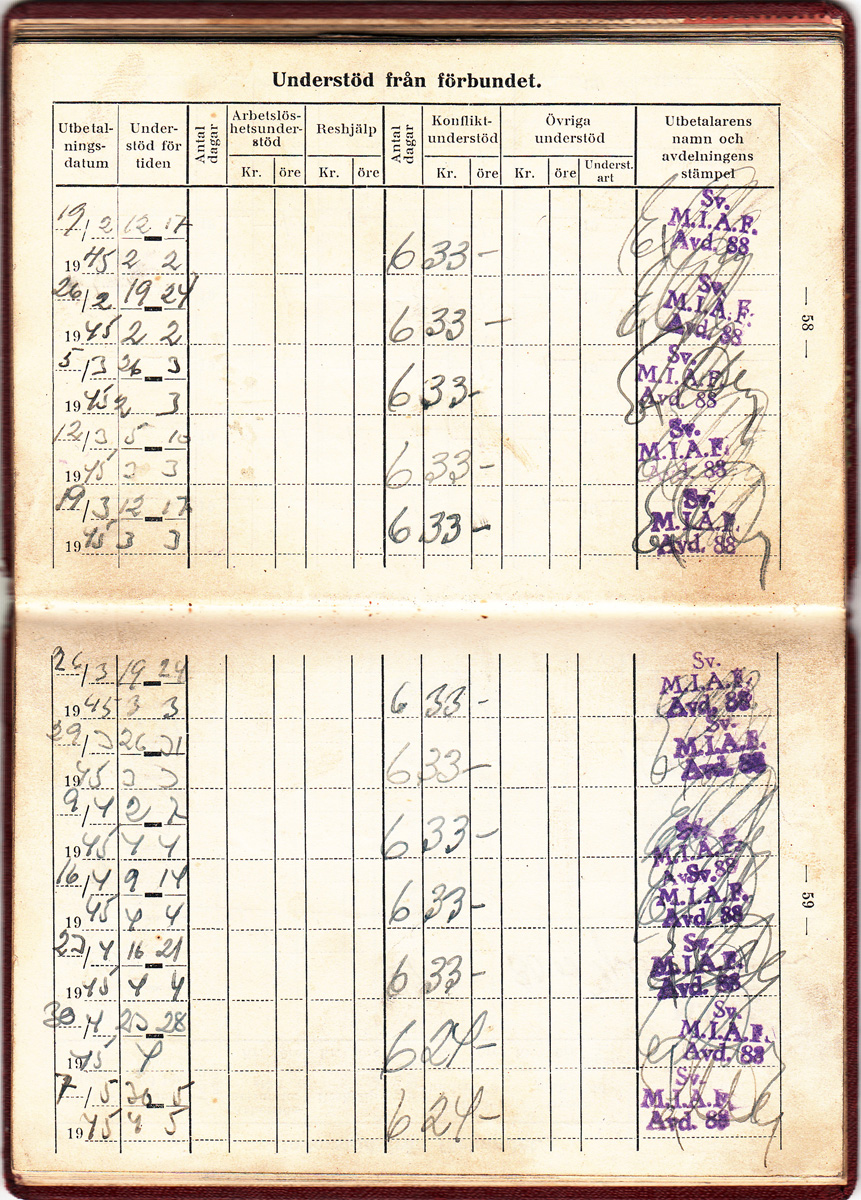 Understöd från förbundet.
Utbetal-nings-datum Under-stöd för tiden Antal dagar Arbetslös-hetsunder-stöd Reshjälp Antal dagar Konflikt-understöd Övriga understöd Utbetalarens namn och avdelningens stämpel
Kr. öre Kr. öre Kr. öre Kr. öre Underst. art
19/2 12 – 17 Sv. M.I.A.F.
1945 2 2 6 33 – Avd. 88
26/2 19 – 24 Sv. M.I.A.F.
1945 2 2 6 33 – Avd. 88
5/3 26 – 3 Sv. M.I.A.F.
1945 2 3 6 33 – Avd. 88
12/3 5 – 10 Sv. M.I.A.F.
1945 3 3 6 33 – Avd. 88
19/3 12 – 17 Sv. M.I.A.F.
1945 3 3 6 33 – Avd. 88
— 58 —
26/3 19 – 24 Sv. M.I.A.F.
1945 3 3 6 33 – Avd. 88
29/3 26 – 31 Sv. M.I.A.F.
1945 3 3 6 33 – Avd. 88
9/4 2 – 7 Sv. M.I.A.F.
1945 4 4 6 33 – Avd. 88
16/4 9 – 14 Sv. M.I.A.F.
1945 4 4 6 33 – Avd. 88
23/4 16 – 21 Sv. M.I.A.F.
1945 4 4 6 33 – Avd. 88
30/4 23 – 28 Sv. M.I.A.F.
1945 4 6 24 – Avd. 88
7/5 30 – 5 Sv. M.I.A.F.
1945 4 5 6 24 – Avd. 88
— 59 —